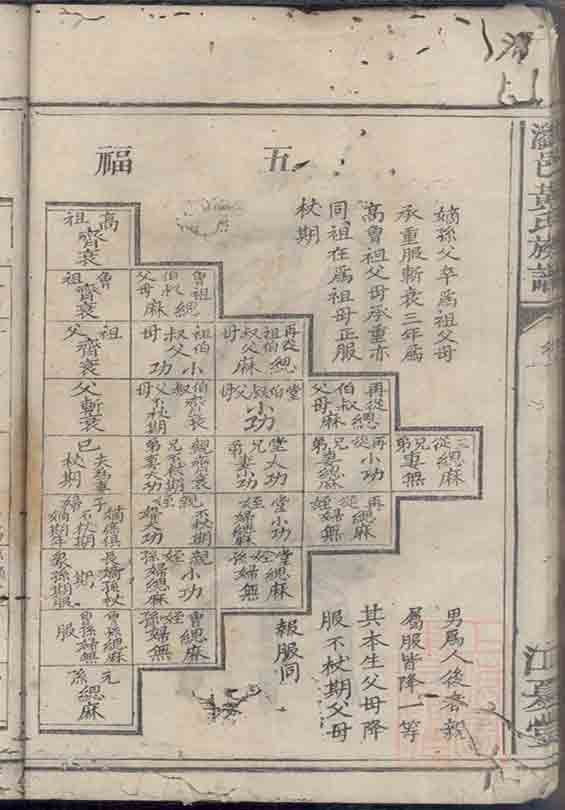 瀏邑黃氏族譜
江夏堂
五福
嫡孫父卒爲祖父母
承重服斬衰三年爲
高曾祖父母承重亦
同祖在爲祖母正服
杖期
高祖齊衰
曾祖伯叔父母緦麻
曾祖齊衰
再從祖伯叔父母緦麻
祖伯叔父母小功
祖父齊衰
再從伯叔父母緦麻
堂伯叔父母小功
伯叔父母齊衰不杖期
父斬衰
三從兄弟緦麻妻無
再從兄弟小功妻緦麻
堂兄弟大功妻小功
親兄弟齊衰不杖期妻大功
己夫爲妻杖期
再從姪緦麻婦無
堂姪小功婦緦麻
親姪不杖期婦大功
堂姪孫緦麻婦無
親姪孫小功婦緦麻
長嫡孫杖期
衆孫期服
曾姪孫緦麻婦無
曾孫緦麻曾孫婦無服
元孫緦麻
男爲人後者親
屬服皆降一等
其本生父母降
服不杖期父母
報服同